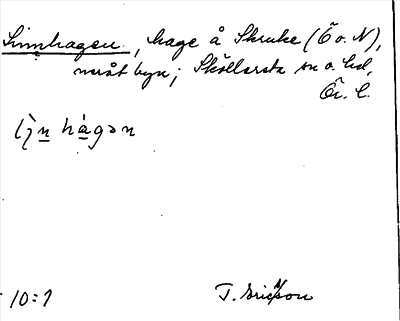 Linnhagen, hage å Skruke (Ö o. N),
nuråt byn; Sköllersta sn o. hd,
Ör. l.
lìn hágən
10:1
T. Ericsson